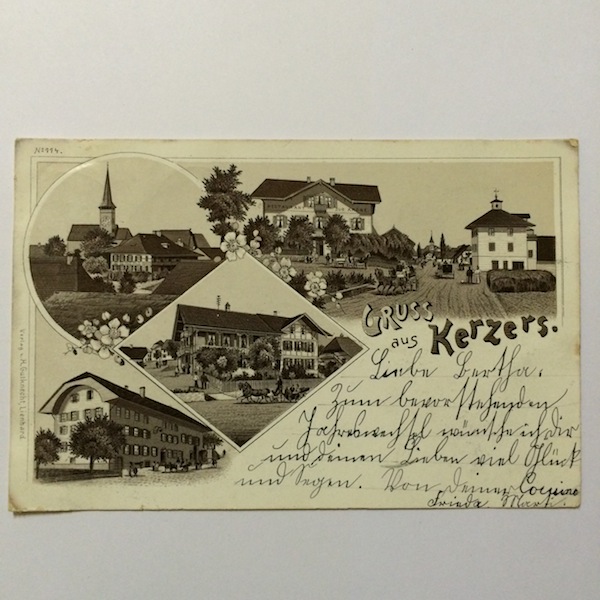 No 114.
GRUSS
aus
Kerzers.
Liebe Bertha.
Zum bevorstehenden
Jahreswechsel wünsche ich dir
und deinen Lieben viel Glück
und Segen. Von Deiner Cousine
Frieda Marti.
Verlag v. H. Gutknecht, Lienhard